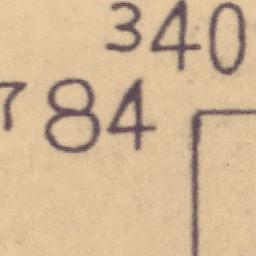 340
784